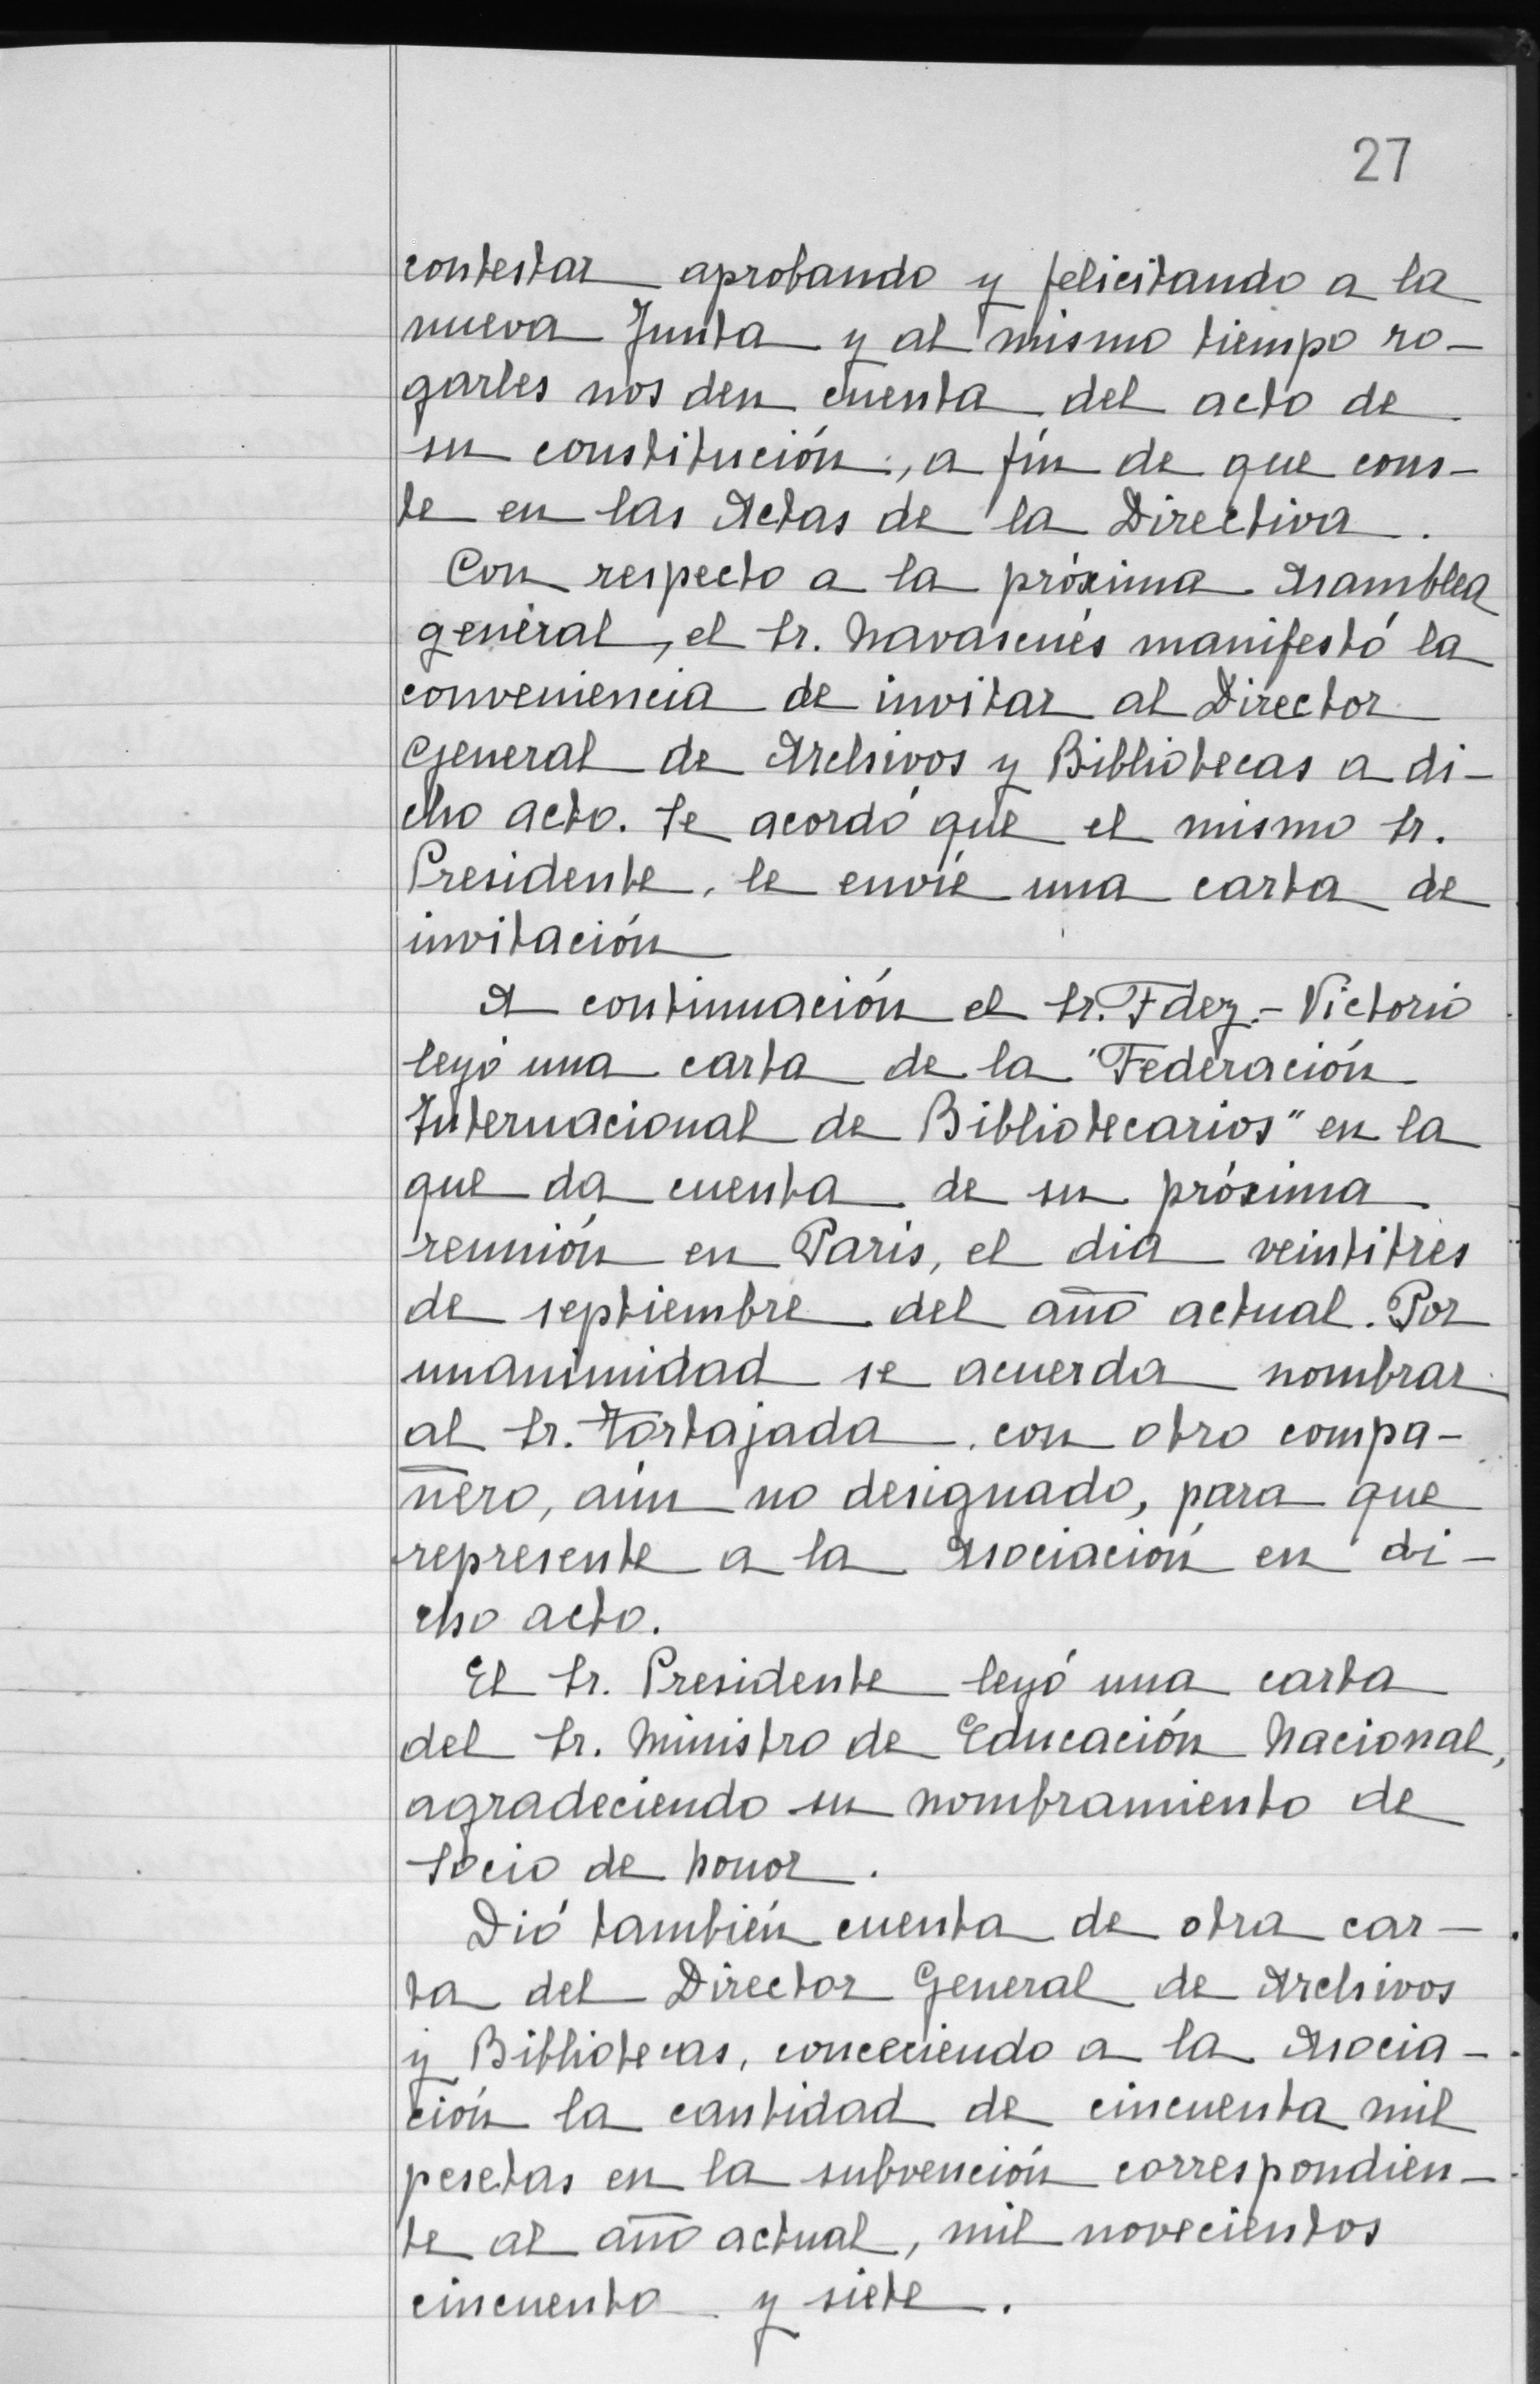 27
contestar aprobando y felicitando a la
nueva Junta y al mismo tiempo ro-
garles nos den cuenta del acto de
su constitución, a fín de que cons-
te en las Actas de la Directiva.
Con respecto a la próxima Asamblea
general, el Sr. Navascués manifestó la
conveniencia de invitar al Director
General de Archivos y Bibliotecas a di-
cho acto. Se acordó que el mismo Sr.
Presidente, le envíe una carta de
invitación
A continuación el Sr. Fdez.- Victorio
leyó una carta de la "Federación
Internacional de Bibliotecarios" en la
que da cuenta de su próxima
reunión en París, el dia veintitrés
de septiembre del año actual. Por
unanimidad se acuerda nombrar
al Sr. Tortajada, con otro compa-
ñero, aún no designado, para que
represente a la Asociación en di-
cho acto.
El Sr. Presidente leyó una carta
del Sr. Ministro de Educación Nacional,
agradeciendo su nombramiento de
Socio de honor.
Dió también cuenta de otra car-
ta del Director General de Archivos
y Bibliotecas, conceciendo a la Asocia-
ción la cantidad de cincuenta mil
pesetas en la subvención correspondien-
te al año actual, mil novecientos
cincuenta y siete.